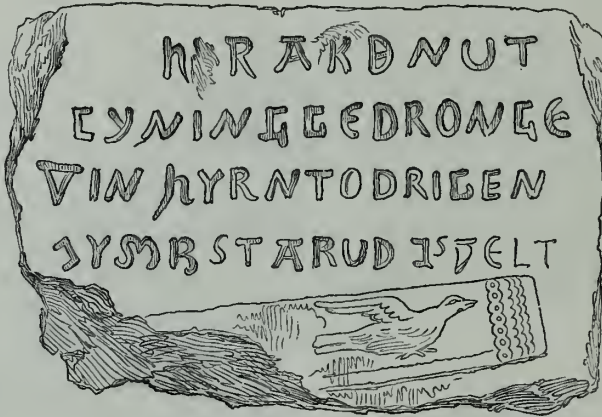 H RAKÐNUT
CYNINGGEDRONGE
VIN HYRNTODRIGEN
YMBSTARUD